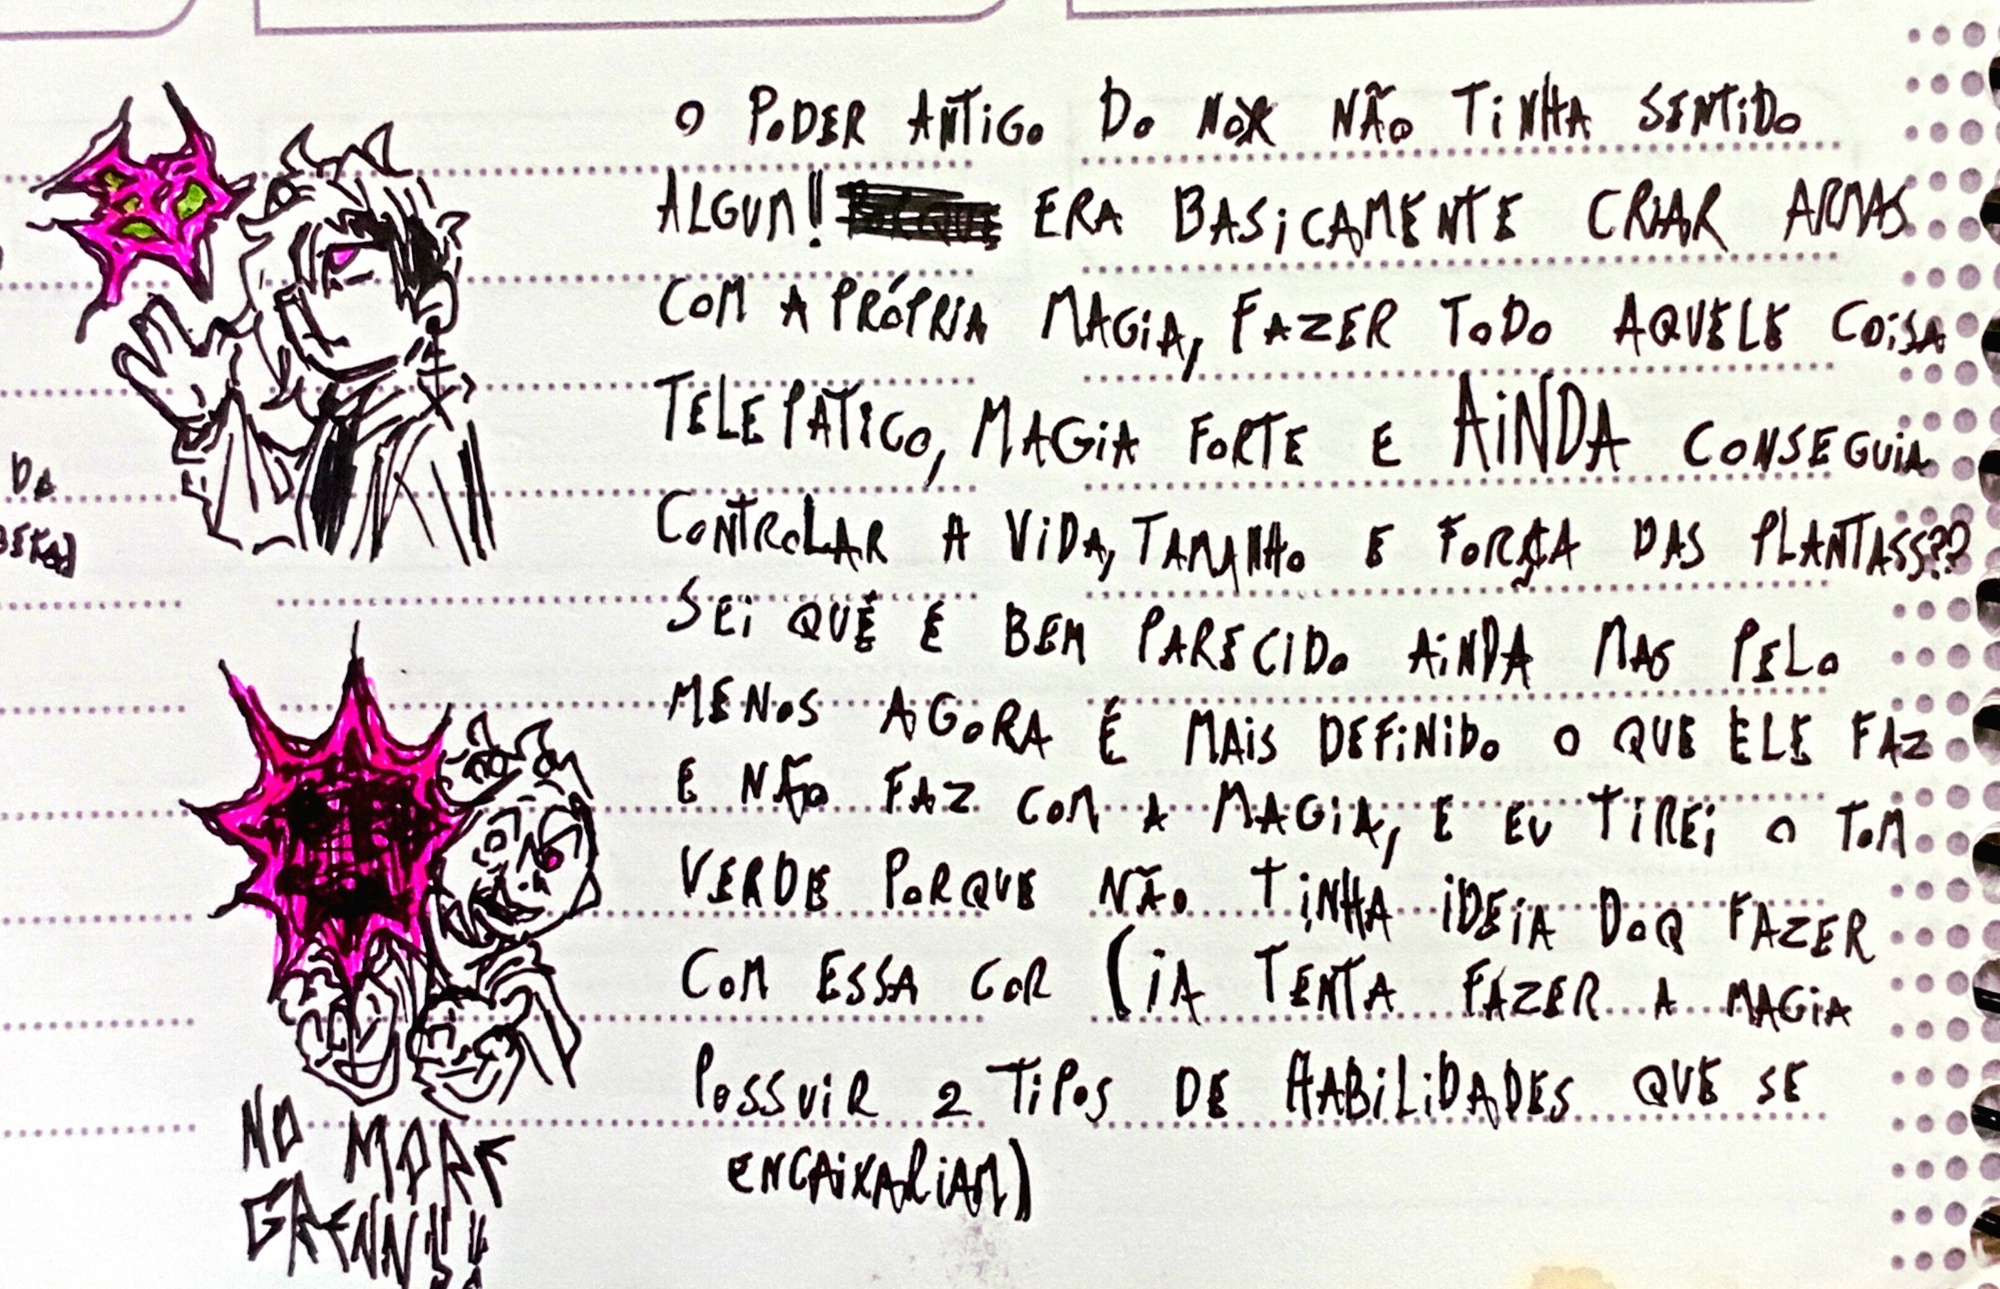 O PODER ANTIGO DO NOX NÃO TINHA SENTIDO
ALGUM!! ERA BASICAMENTE CRIAR ARMAS
COM A PRÓPRIA MAGIA, FAZER TODO AQUELE COISA
TELEPÁTICO, MAGIA FORTE E AINDA CONSEGUIA
CONTROLAR A VIDA, TAMANHO E FORÇA DAS PLANTASS??
SEI QUE É BEM PARECIDO AINDA MAS PELO
MENOS AGORA É MAIS DEFINIDO O QUE ELE FAZ
E NÃO FAZ COM A MAGIA, E EU TIREI O TOM
VERDE PORQUE NÃO TINHA IDEIA DOQ FAZER
COM ESSA COR (IA TENTA FAZER A MAGIA
POSSUIR 2 TIPOS DE HABILIDADES QUE SE
ENCAIXARIAM)
DA
NO MORE
GREENN!!